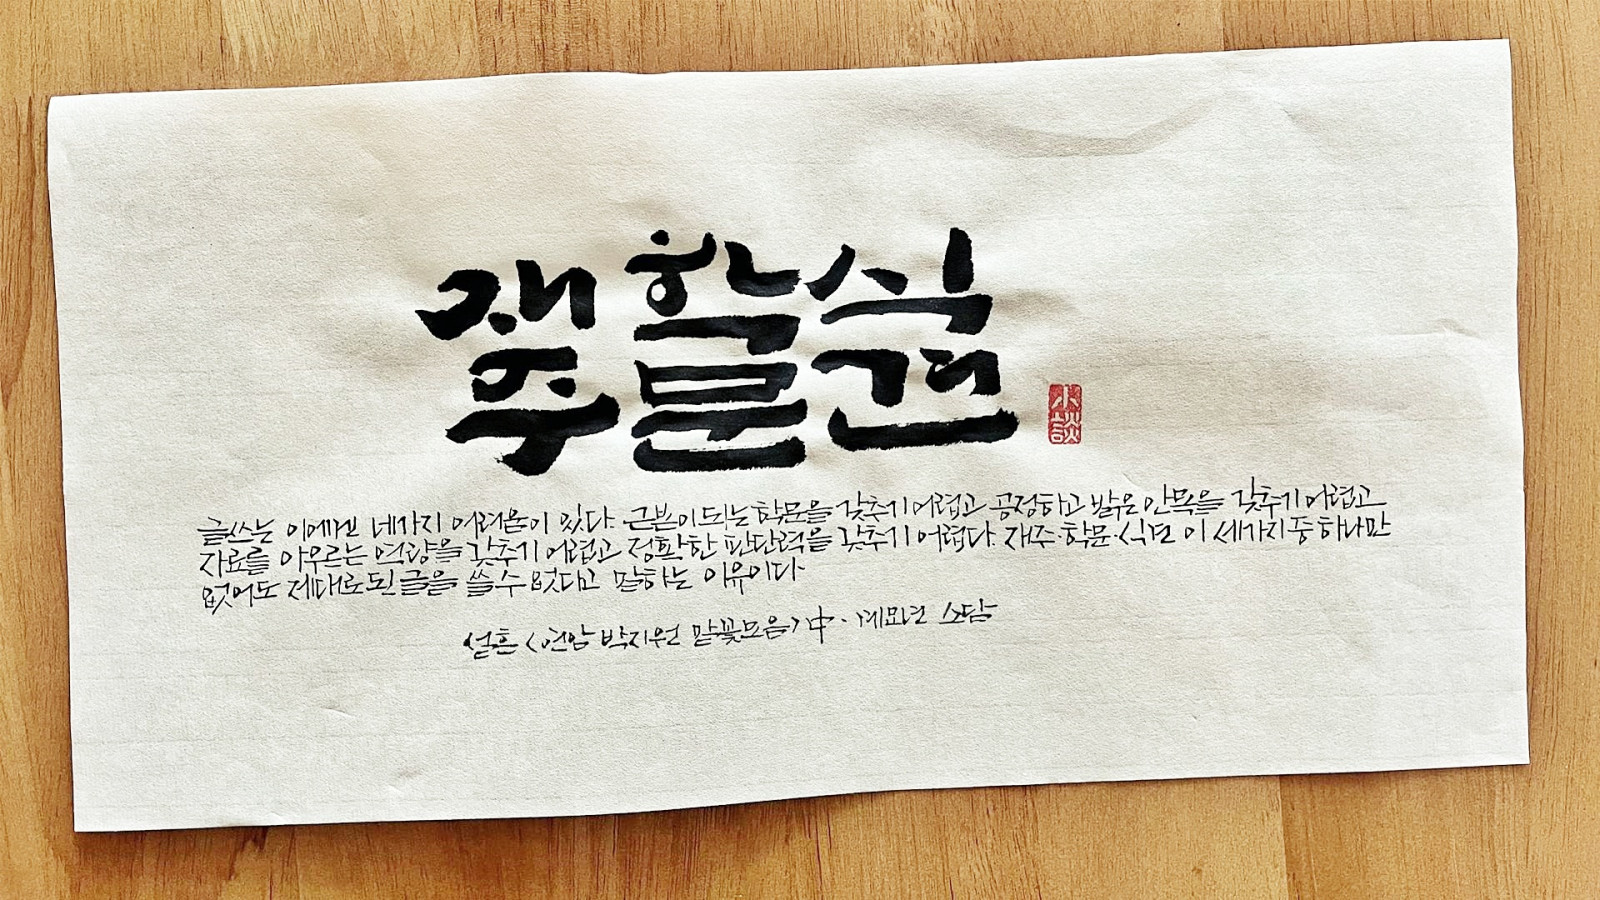 재주
학문
식견
小談
글쓰는 이에겐 네가지 어려움이 있다. 근본이 되는 학문을 갖추기 어렵고 공정하고 밝은 안목을 갖추기 어렵고
자료를 아우르는 역량을 갖추기 어렵고 정확한 판단력을 갖추기 어렵다. 재주·학문·식견 이 세가지 중 하나만
없어도 제대로 된 글을 쓸 수 없다고 말하는 이유이다.
설흔 <연암 박지원 말꽃모음> 中 · 계묘년 소담